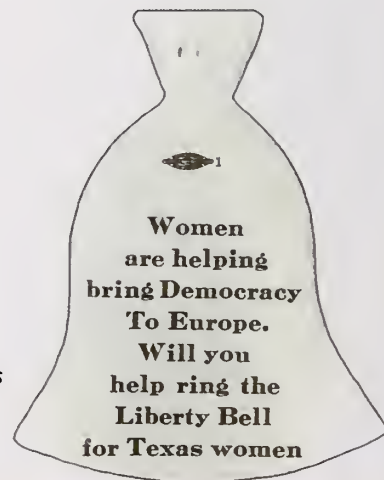 1
Women
are helping
bring Democracy
To Europe.
Will you
help ring the
Liberty Bell
for Texas women
s